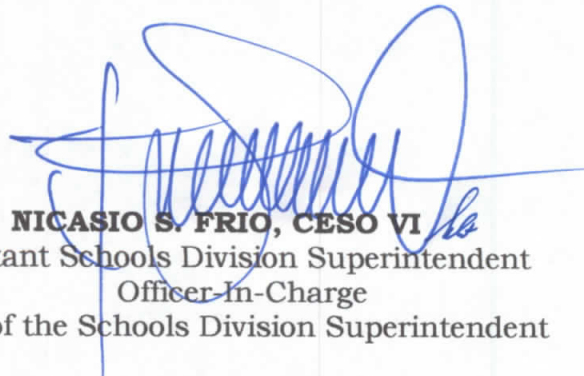 NICASIO S. FRIO, CESO VI
tant Schools Division Superintendent
Officer-In-Charge
of the Schools Division Superintendent